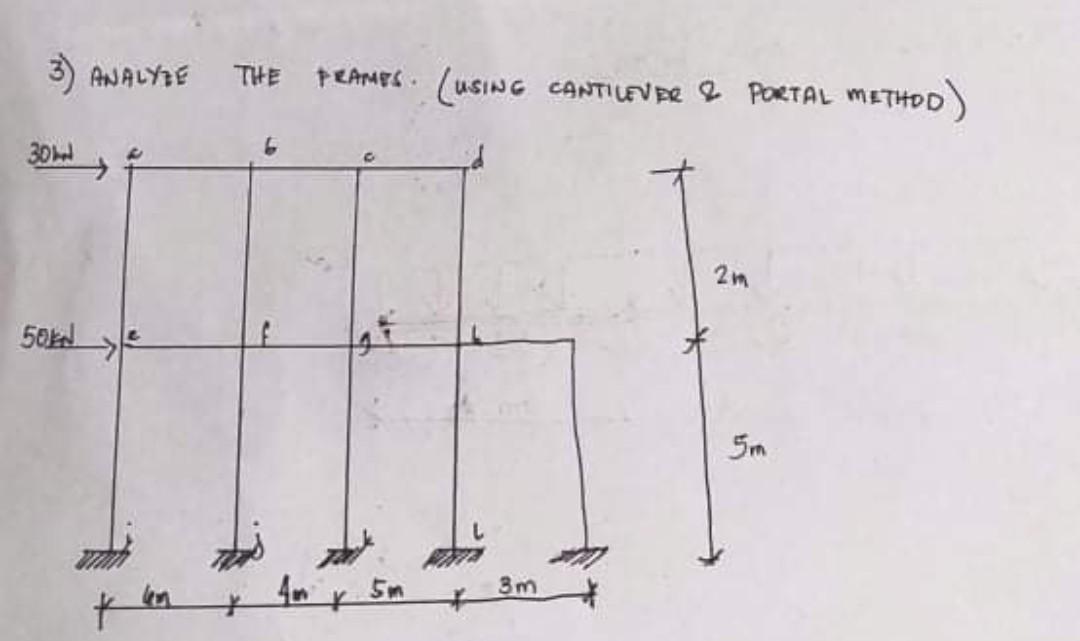 3) ANALYZE THE FRAMES. (USING CANTILEVER & PORTAL METHOD)
30kN a b c d
2m
50kN e f g h
5m
i j k l
4m 5m 3m